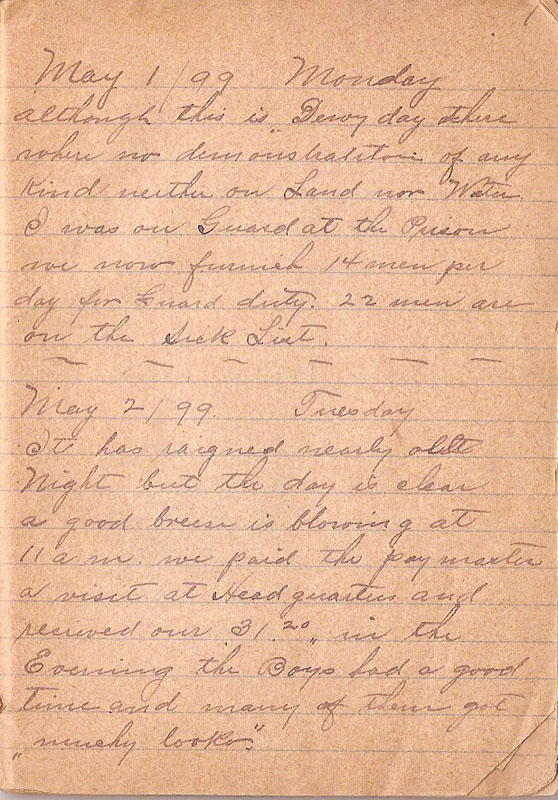 1
May 1/99 Monday
although this is Dewy day there
where no demonstratition of any
Kind neither on Land nor Water.
I was on Guard at the Prison
we now furnish 14 men per
day for Guard duty. 22 men are
on the Sick List.
May 2/99. Tuesday
It has raigned nearly all
Night but the day is clear
a good breese is blowing at
11 a m. we paid the paymaster
a visit at Headquarters and
recieved our 31.20 in the
Evening the Boys had a good
time and many of them got